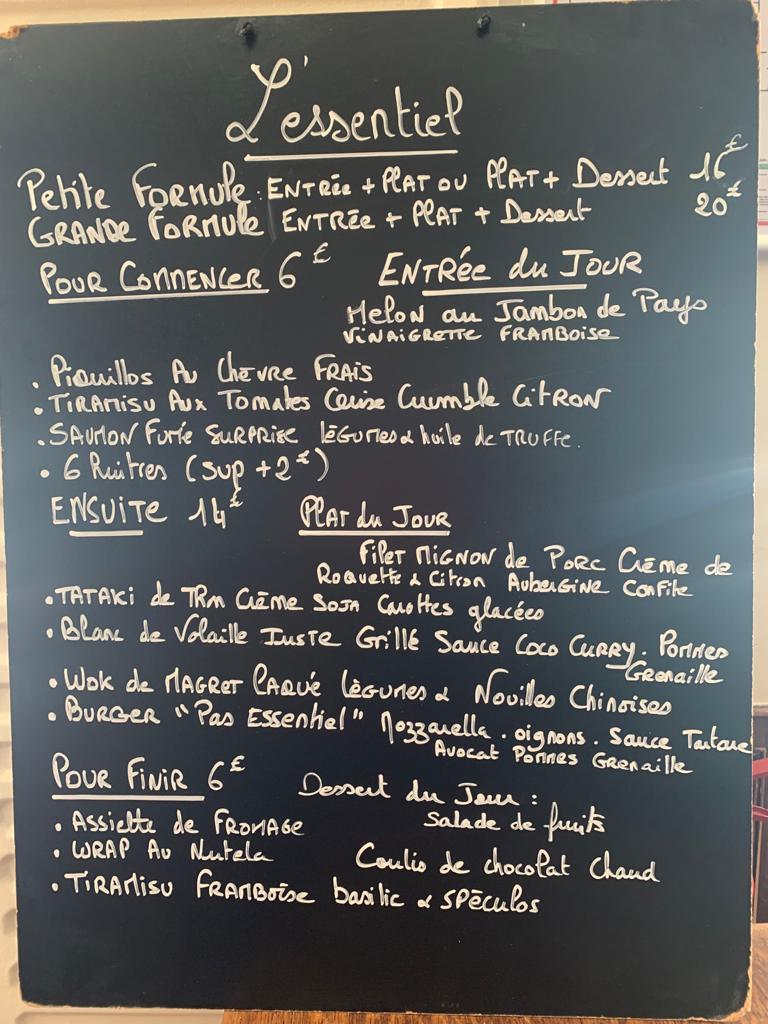 L'essentiel
Petite Formule : Entrée + Plat ou Plat + Dessert 16€
Grande Formule Entrée + Plat + Dessert 20€
Pour Commencer 6€ Entrée du Jour
Melon au Jambon de Pays
Vinaigrette Framboise
• Piquillos Au Chèvre Frais
• Tiramisu Aux Tomates Cerise Crumble Citron
• Saumon Fumé Surprise légumes & huile de Truffe.
• 6 Huitres (Sup +2€)
Ensuite 14€ Plat du Jour
Filet Mignon de Porc Crème de
Roquette & Citron Aubergine Confite
• Tataki de Thon Crème Soja Carottes glacées
• Blanc de Volaille Juste Grillé Sauce Coco Curry. Pommes
Grenaille
• Wok de Magret Laqué Légumes & Nouilles Chinoises
• Burger "Pas Essentiel" Mozzarella . oignons . Sauce Tartare
Avocat Pommes Grenaille
Pour Finir 6€ Dessert du Jour :
Salade de fruits
• Assiette de Fromage
• Wrap Au Nutela Coulis de chocolat Chaud
• Tiramisu Framboise basilic & Spéculos